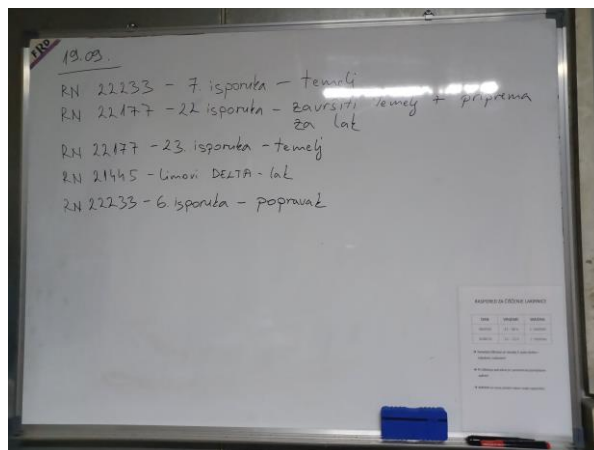 PRO
19.09.
RN 22233 - 7. isporuka - temelj
RN 22177 - 22. isporuka - završiti temelj + priprema
za lak
RN 22177 - 23. isporuka - temelj
RN 21445 - Limovi DELTA - lak
RN 22233 - 6. isporuka - popravak
RASPORED ZA ČIŠĆENJE LAKIRNICE